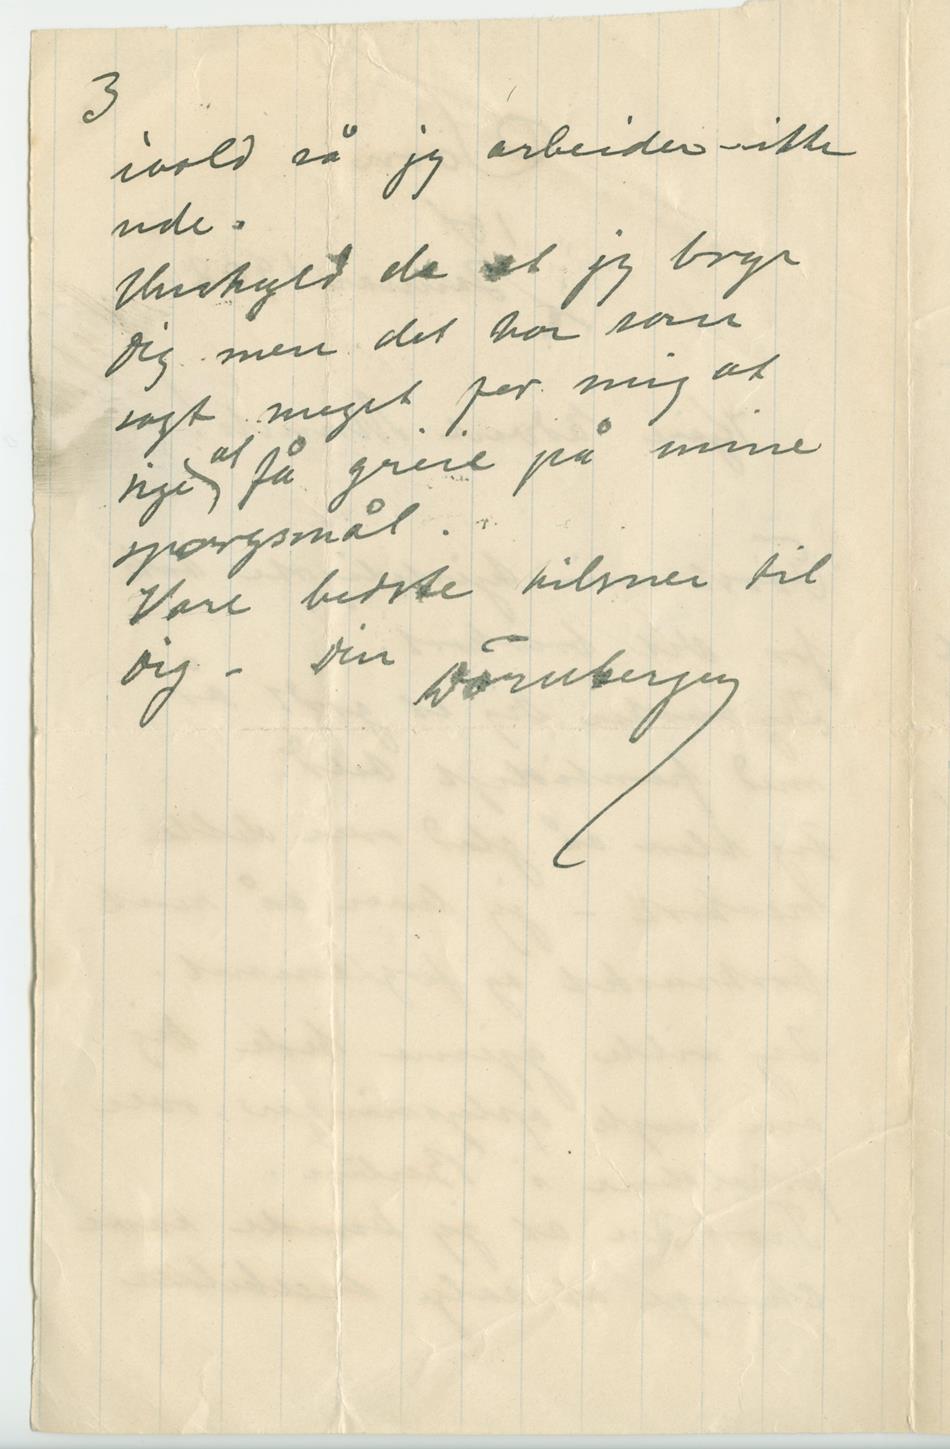 3
ivold så jeg arbeider ikke
ude.
Undskyld de at jeg bryr
Dig men det har som
sagt meget for mig at
sige at få greie på mine
spørgsmål.
Vore bedste hilsner til
Dig – Din Dörnberger